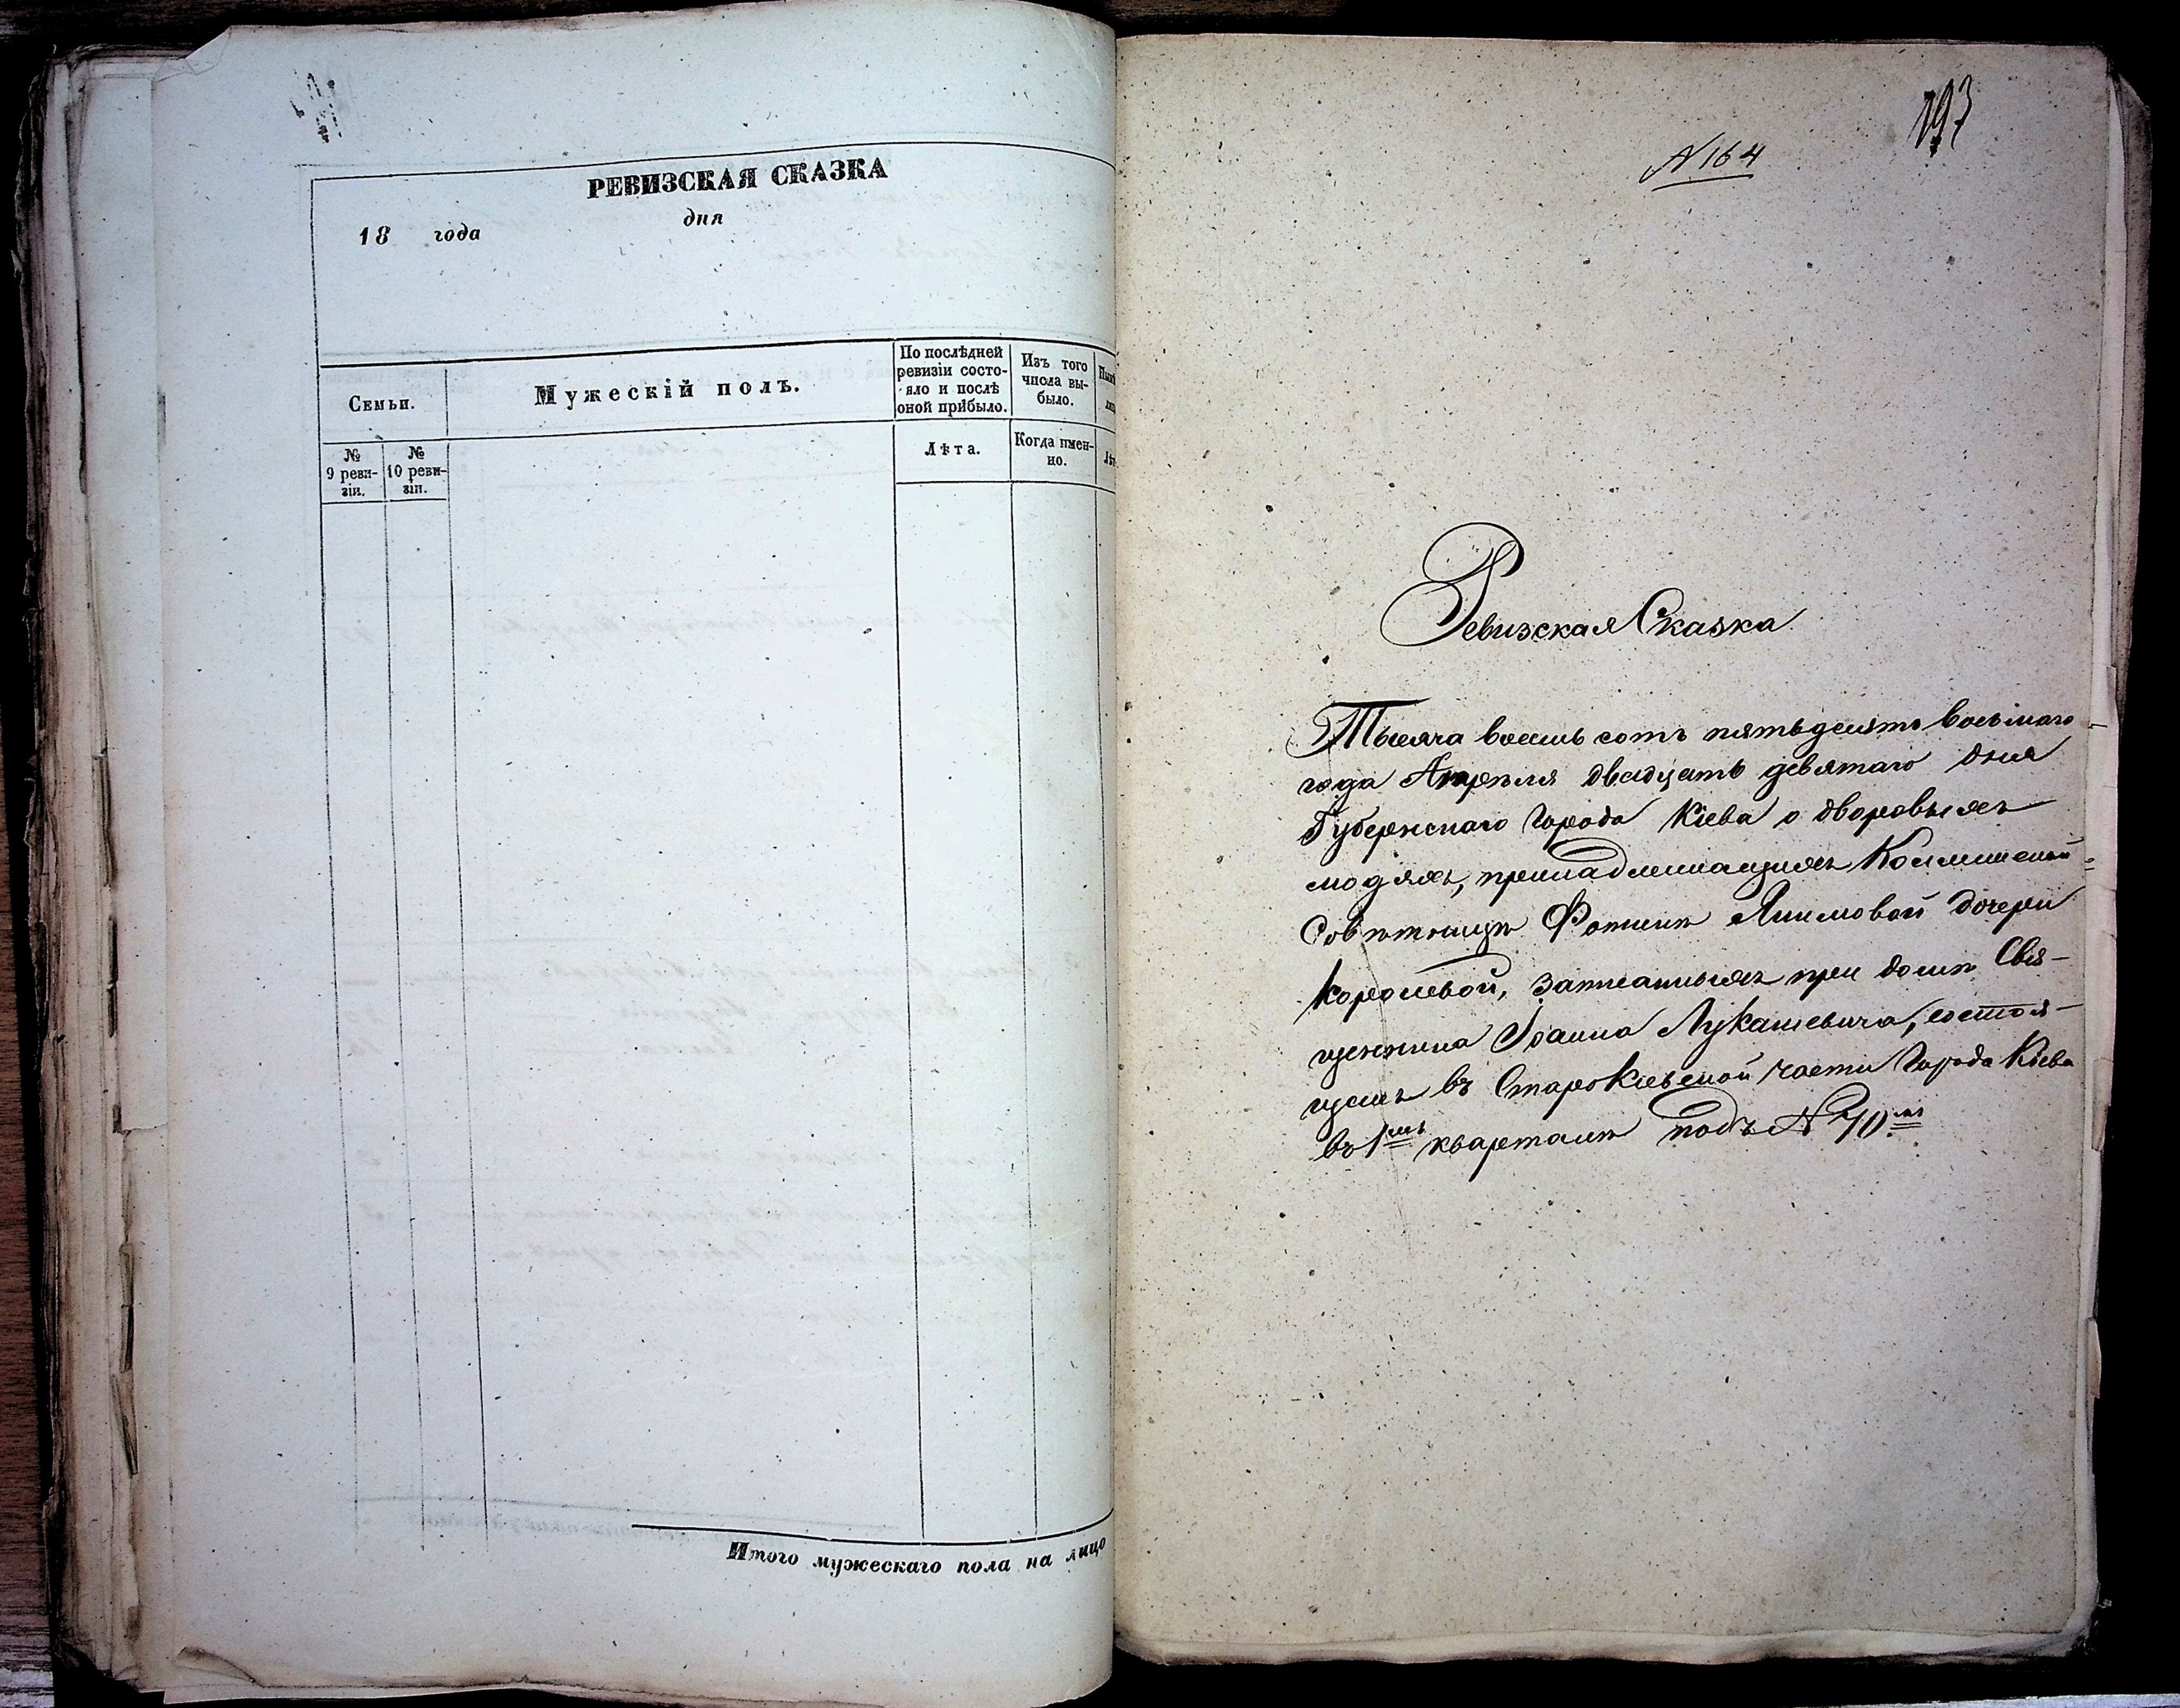 РЕВИЗСКАЯ СКАЗКА
18 года дня
Семьи.
Мужескій полъ.
По послѣдней
ревизіи состо-
яло и послѣ
оной прибыло.
Изъ того
числа вы-
было.
№
9 реви-
зіи.
№
10 реви-
зіи.
Лѣта.
Когда имен-
но.
Итого мужескаго пола на лицо
193
№ 164
Ревизская Сказка
Тысяча восемь сотъ пятьдесятъ восьмаго
года Апрѣля двадцать девятаго дня
Губернскаго Города Кіева о дворовыхъ
людяхъ, принадлежащихъ Коллежской
Совѣтницѣ Фотинѣ Якимовой дочери
Королевой, записанныхъ при домѣ Свя-
щенника Іоанна Лукашевича, состоя-
щемъ въ Старокіевской части Города Кіева
въ 1мъ кварталѣ подъ № 70мъ